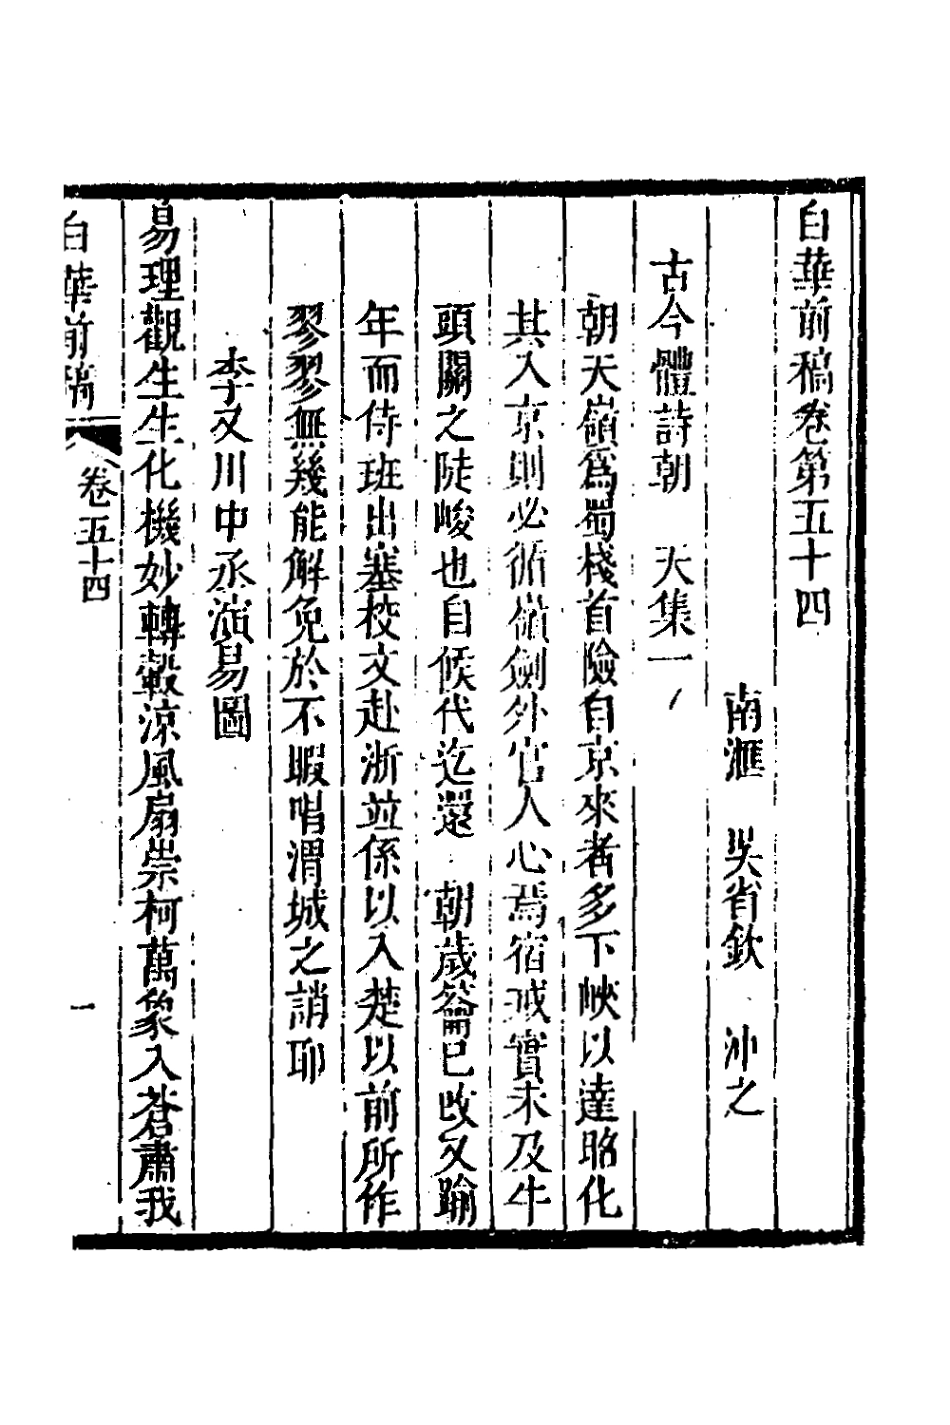 白華前稿卷第五十四
南滙 吳省欽 沖之
古今體詩朝 天集一
朝天嶺爲蜀棧首險自京來者多下峽以達昭化
其入京則必循嶺劍外官人心焉宿戒實未及牛
頭關之陡峻也自候代迄還 朝歲籥已改又踰
年而侍班出塞校文赴浙並係以入楚以前所作
翏翏無幾能解免於不暇唱渭城之誚耶
李又川中丞演易圖
易理觀生生化機妙轉轂涼風扇崇柯萬象入蒼肅我
白華前稿
卷五十四
一